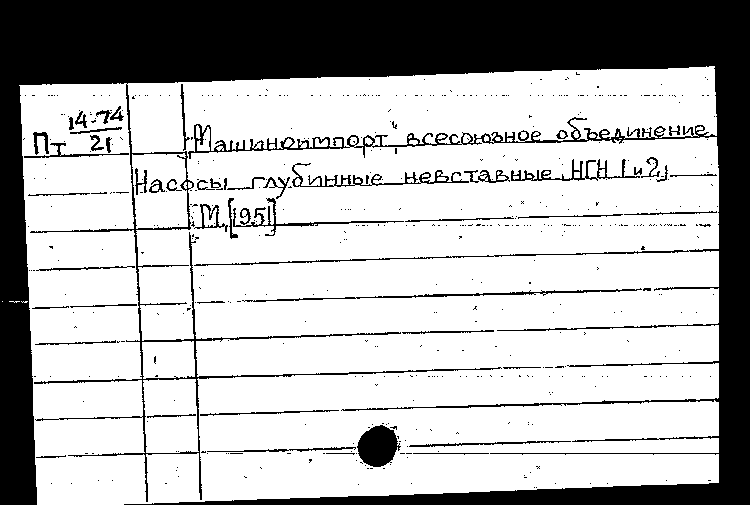 Пт 14-74/21
„Машиноимпорт“, всесоюзное объединение.
Насосы глубинные невставные НГН 1 и 2.
М., [195I]